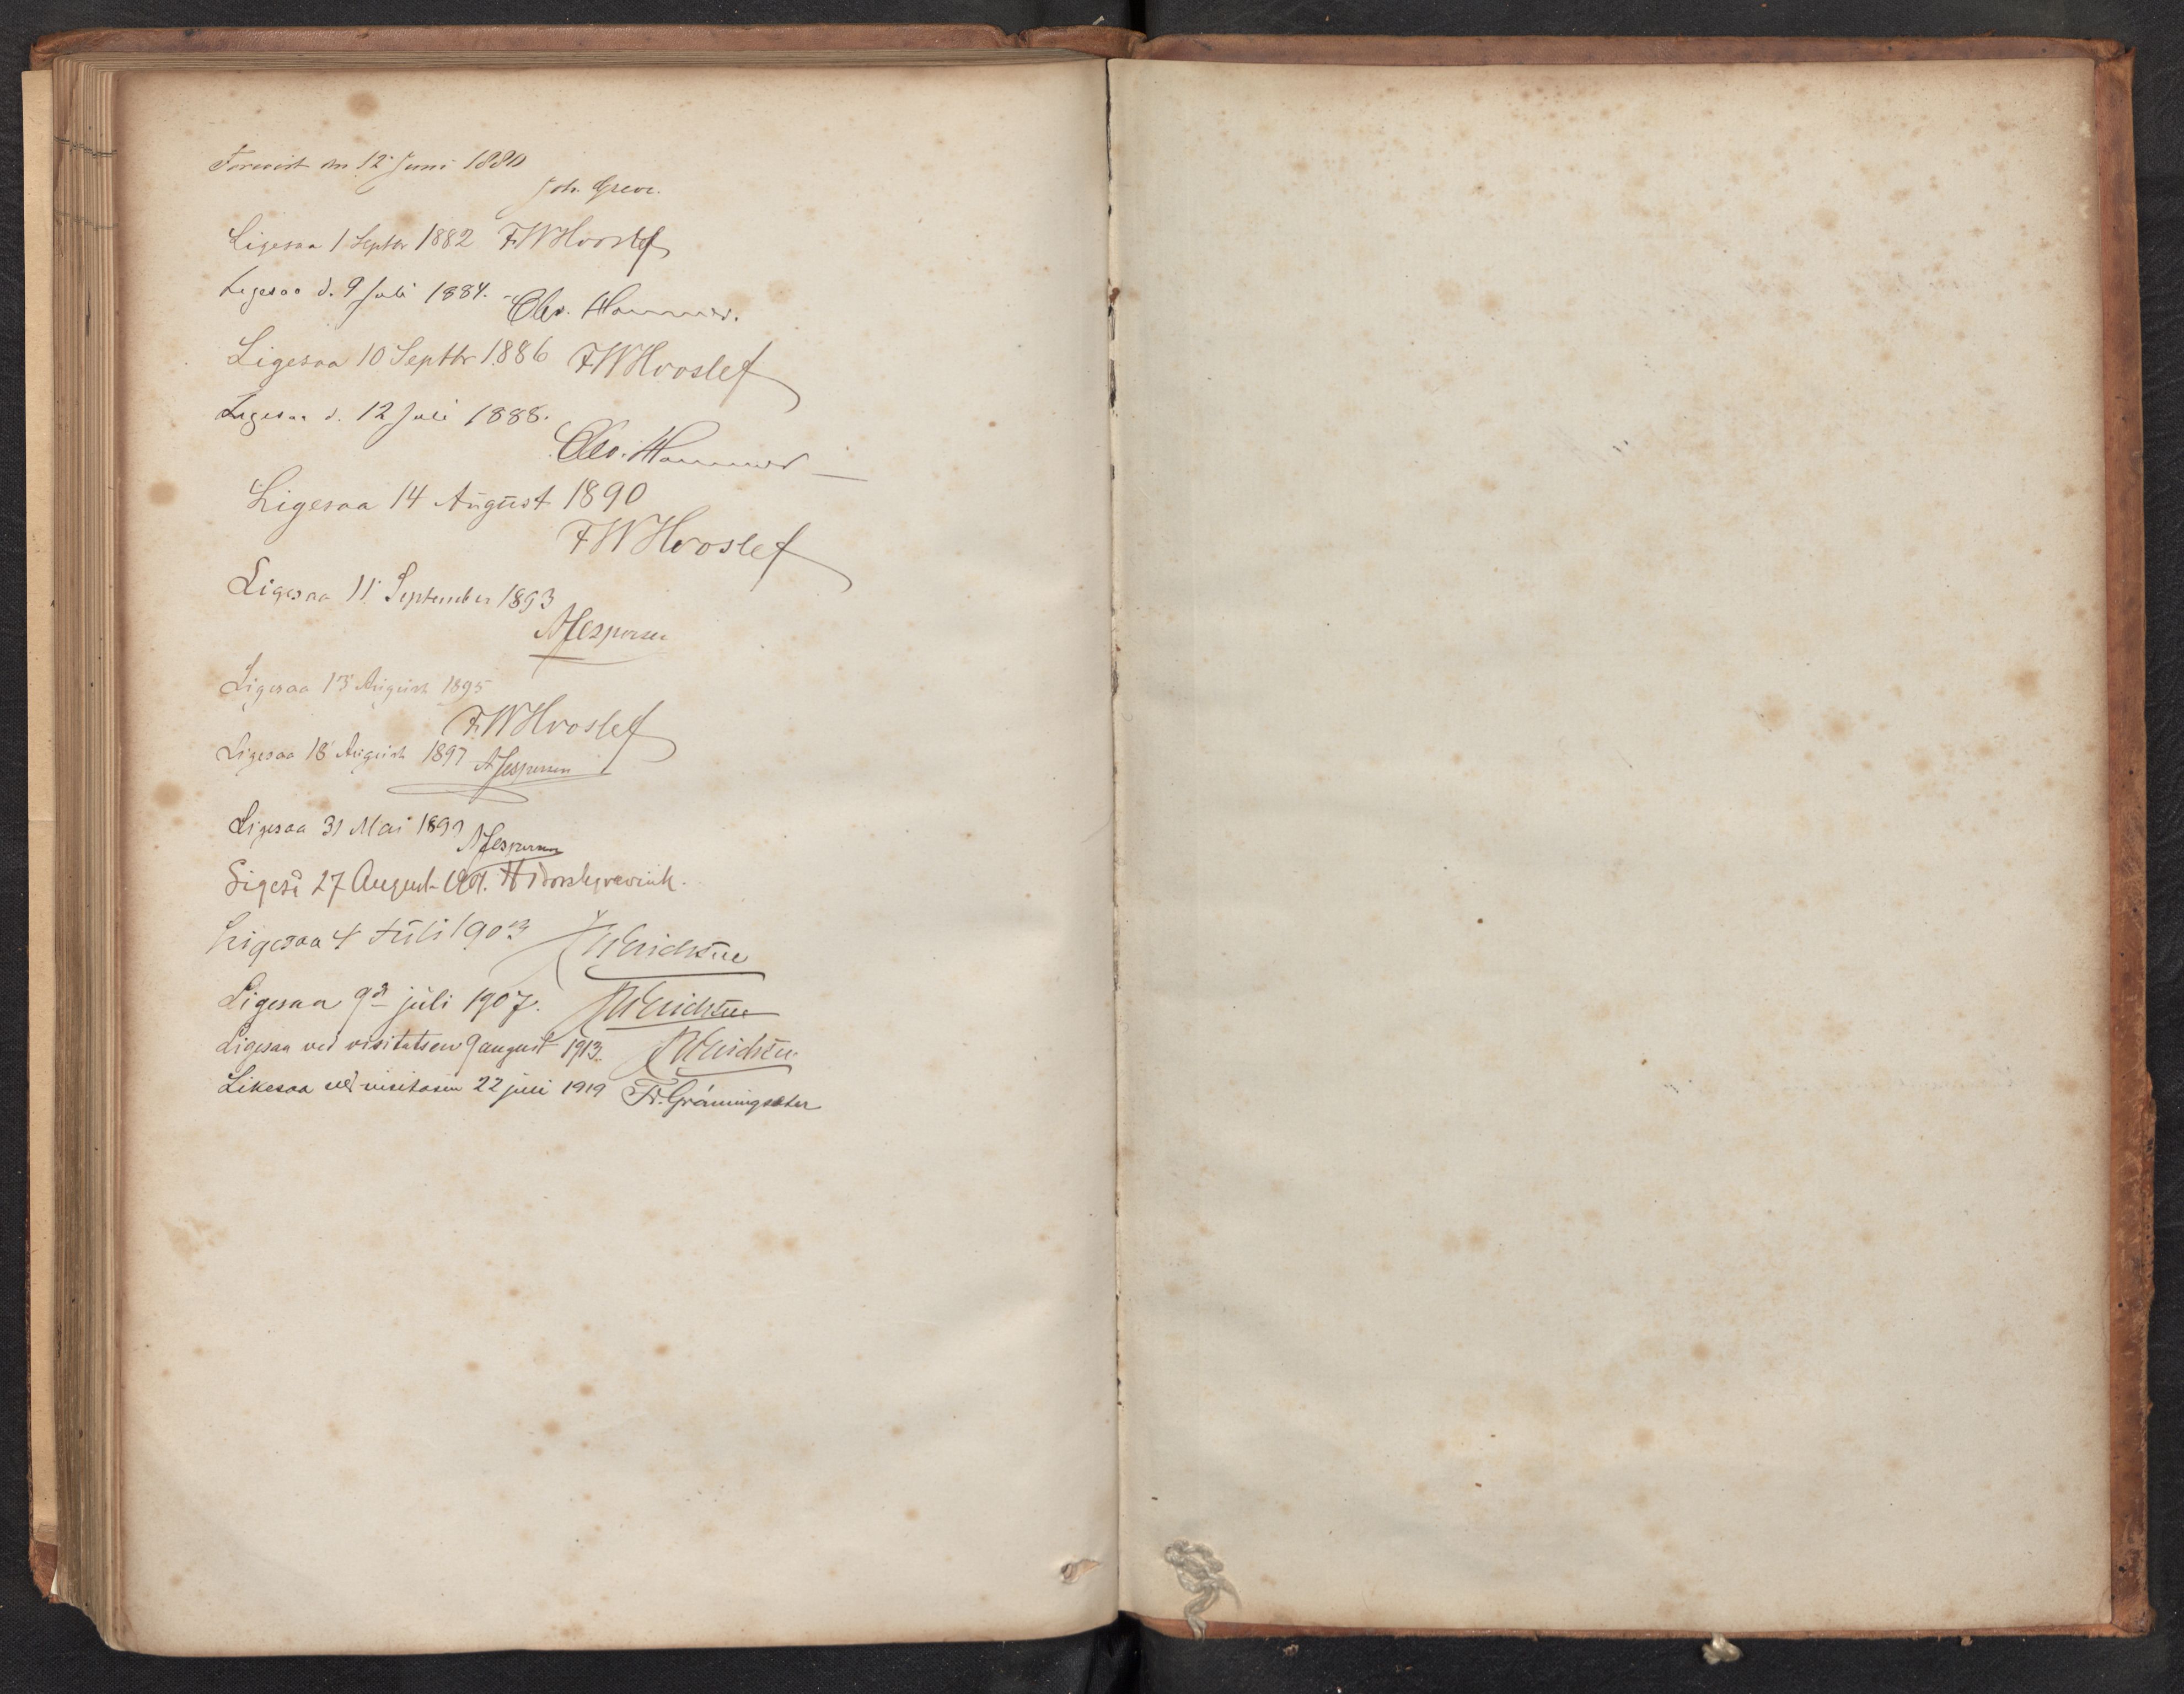 Forevist den 12 Juni 1880
Joh. Greve.
Ligesaa 1 Septbr 1882 FWHvoslef
Ligesaa d. 9 Juli 1884. Chr. Hammer.
Ligesaa 10 Septbr 1886 FWHvoslef
Ligesaa d. 12 Juli 1888.
Chr. Hammer
Ligesaa 14 August 1890
FWHvoslef
Ligesaa 11 September 1893
AJespersen
Ligesaa 13 August 1895
FWHvoslef
Ligesaa 18 August 1897 AJespersen
Ligesaa 31 Mai 1899
AJespersen
Ligeså 27 August 1901.
Ligesaa 4 Juli 1903
Ligesaa 9de juli 1907.
Ligesaa ved visitatsen 9 august 1913.
Likesaa ved visitasen 22 juli 1919 Fr. Grønningsæter